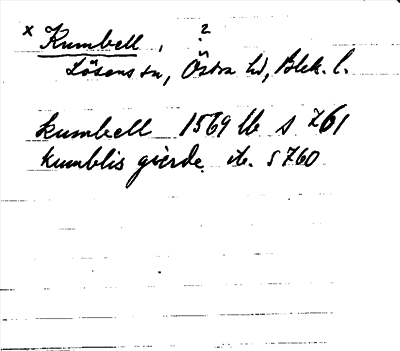 x Kumbell, ?
Lösens sn, Östra hd, Blek. l.
kumbell 1569 lb s 761
kumblis gierde. ib. s 760